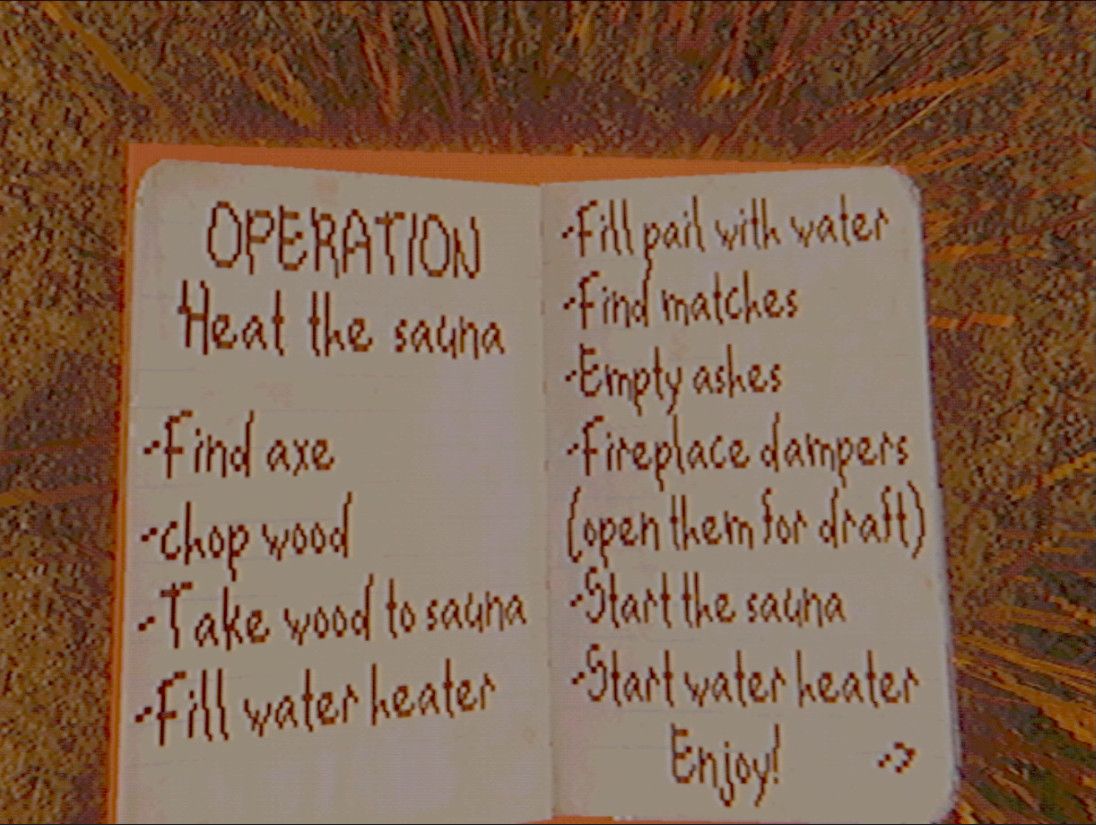 OPERATION
Heat the sauna
-Find axe
-chop wood
-Take wood to sauna
-Fill water heater
-Fill pail with water
-Find matches
-Empty ashes
-Fireplace dampers
(open them for draft)
-Start the sauna
-Start water heater
Enjoy! ->